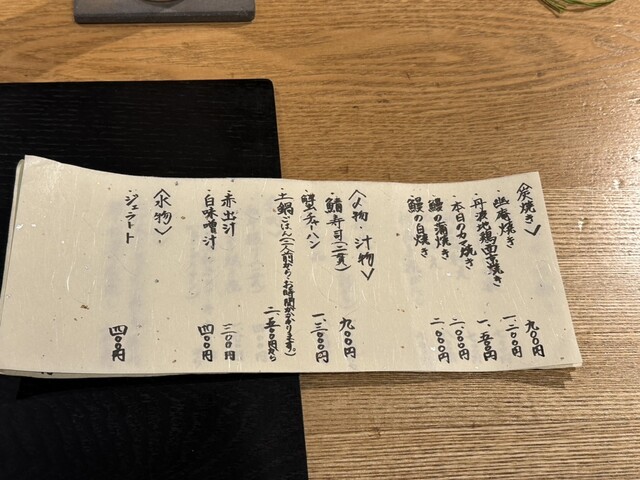 〈炭焼き〉
・幽庵焼き 九〇〇円
・丹波地鶏西京焼き 一、二〇〇円
・本日のカマ焼き 一、五〇〇円
・鰻の蒲焼き 二、〇〇〇円
・鰻の白焼き 二、〇〇〇円
〈〆物・汁物〉
・鯖寿司(二貫) 九〇〇円
・蟹チャーハン 一、三〇〇円
・土鍋ごはん(二人前から・お時間がかかります!) 二、五〇〇円から
・赤出汁 三〇〇円
・白味噌汁 四〇〇円
〈水物〉
・ジェラート 四〇〇円